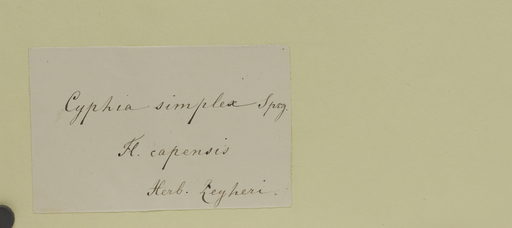 Cyphia simplex Spvg.
Fl. capensis
Herb. Zeyheri.